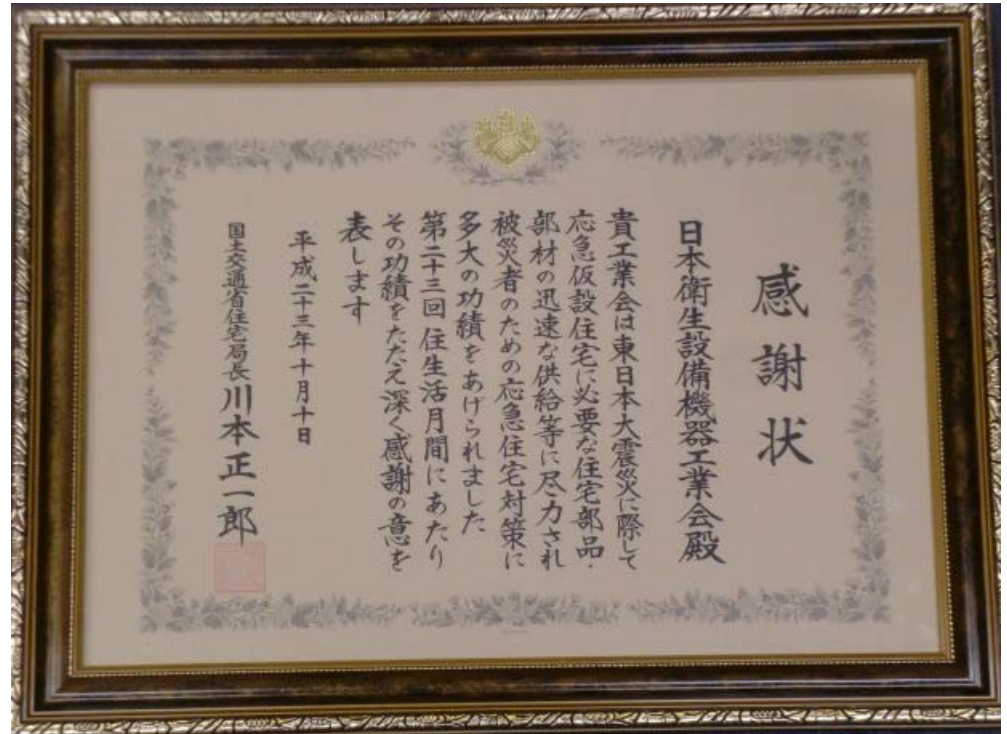 感謝状
日本衛生設備機器工業会殿
貴工業会は東日本大震災に際して
応急仮設住宅に必要な住宅部品・
部材の迅速な供給等に尽力され
被災者のための応急住宅対策に
多大の功績をあげられました
第二十三回住生活月間にあたり
その功績をたたえ深く感謝の意を
表します
平成二十三年十月十日
国土交通省住宅局長 川本正一郎